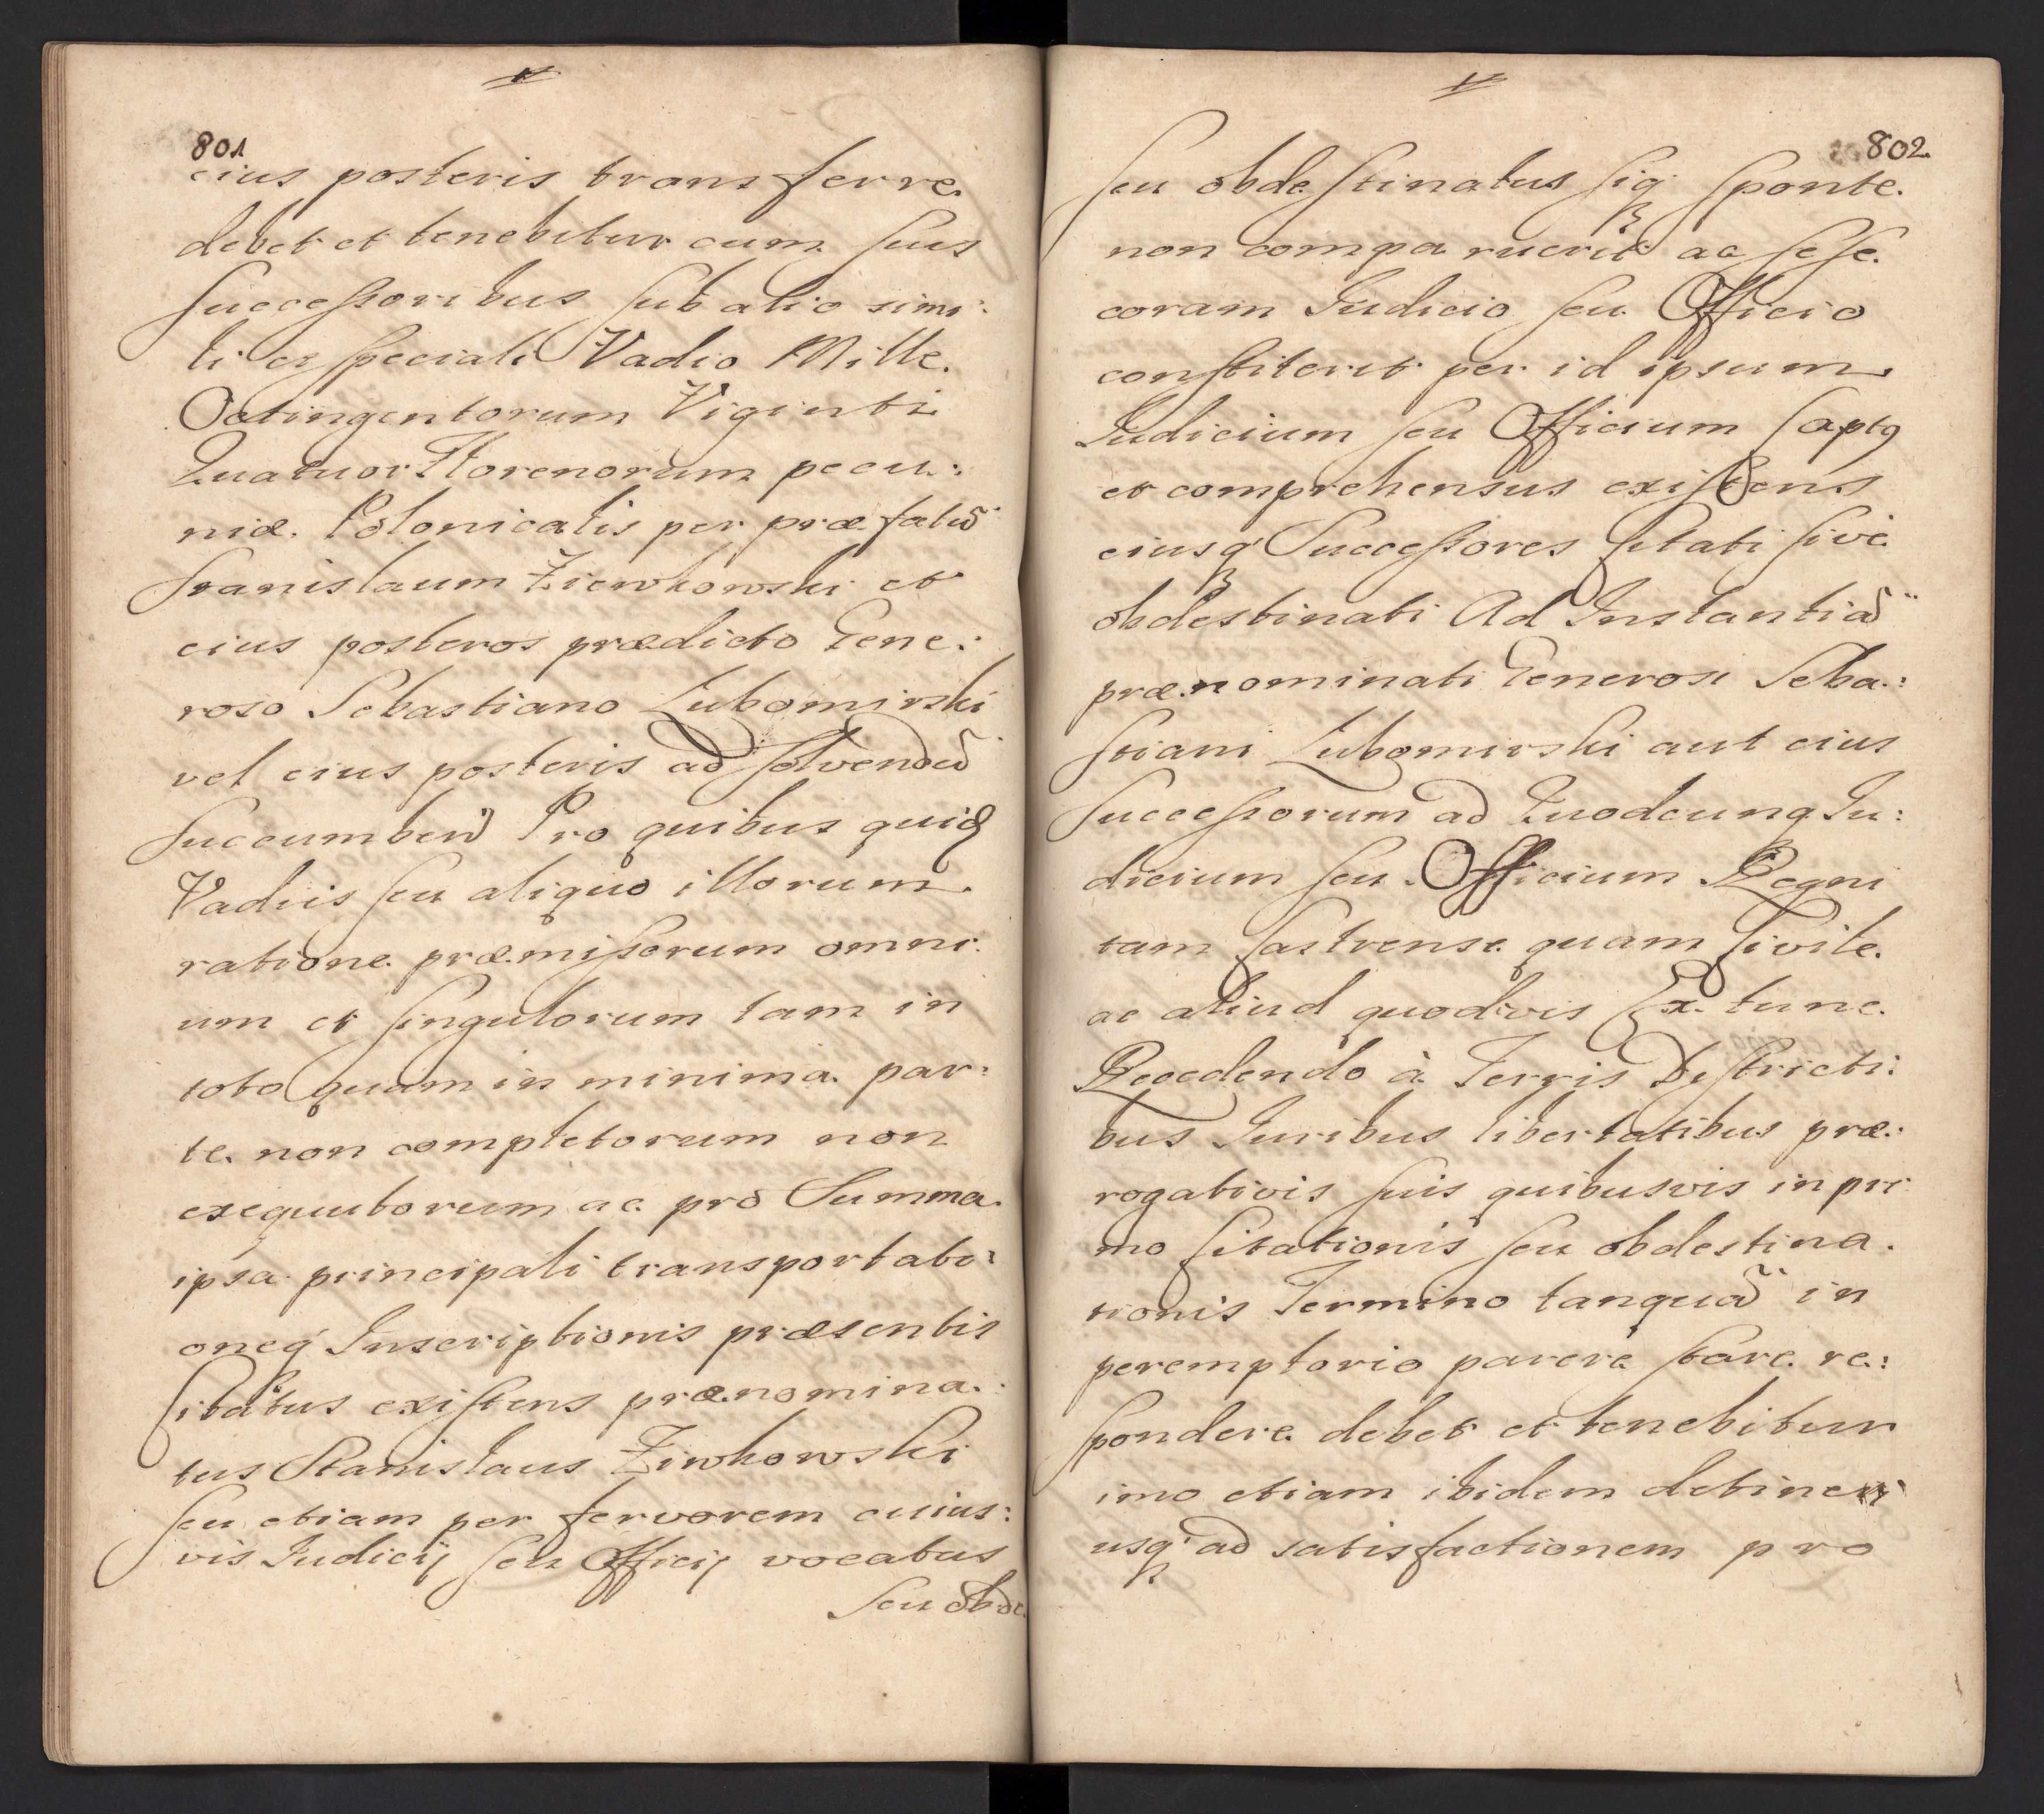 801
eius posteris transferre
debet et tenebitur cum suis
successoribus sub alio simi:
li et speciali Vadio Mille
Octingentorum Viginti
Quatuor Florenorum pecu:
niæ Polonicalis per præfatū
Stanislaum Ziewkowski et
eius posteros prædicto Gene:
roso Sebastiano Lubomirski
vel eius posteris ad solvendū
succumben̄ Pro quibus quidē
Vadiis seu aliquo illorum
ratione præmissorum omni:
um et singulorum tam in
toto quam in minima par:
te non completorum non
exequutorum ac pro Summa
ipsa principali transportati:
oneq Inscriptionis præsentis
Citatus existens prænomina:
tus Stanislaus Ziwkowski
seu etiam per fervorem cuius:
vis Iudicij seu Officij vocatus
seu obde
802
seu obdestinatus siq sponte
non comparuerit ac sese
coram Iudicio seu Officio
constiterit per id ipsum
Iudicium seu Officium captq
et comprehensus existens
eiusq Successores Citati sive
obdestinati Ad Instantiā
prænominati Generosi Seba:
stiani Lubomirski aut eius
Successorum ad Quodcunq Iu:
dicium seu Officium Regni
tam Castrense quam Civile
ac aliud quodvis Ex tunc
Recedendo à Terris Districti:
bus Iuribus libertatibus præ:
rogativis suis quibusvis in pri
mo Citationis seu obdestina:
tionis Termino tanquā in
peremptorio parere stare re:
spondere debet et tenebitur
imo etiam ibidem detineri
usq ad satisfactionem pro